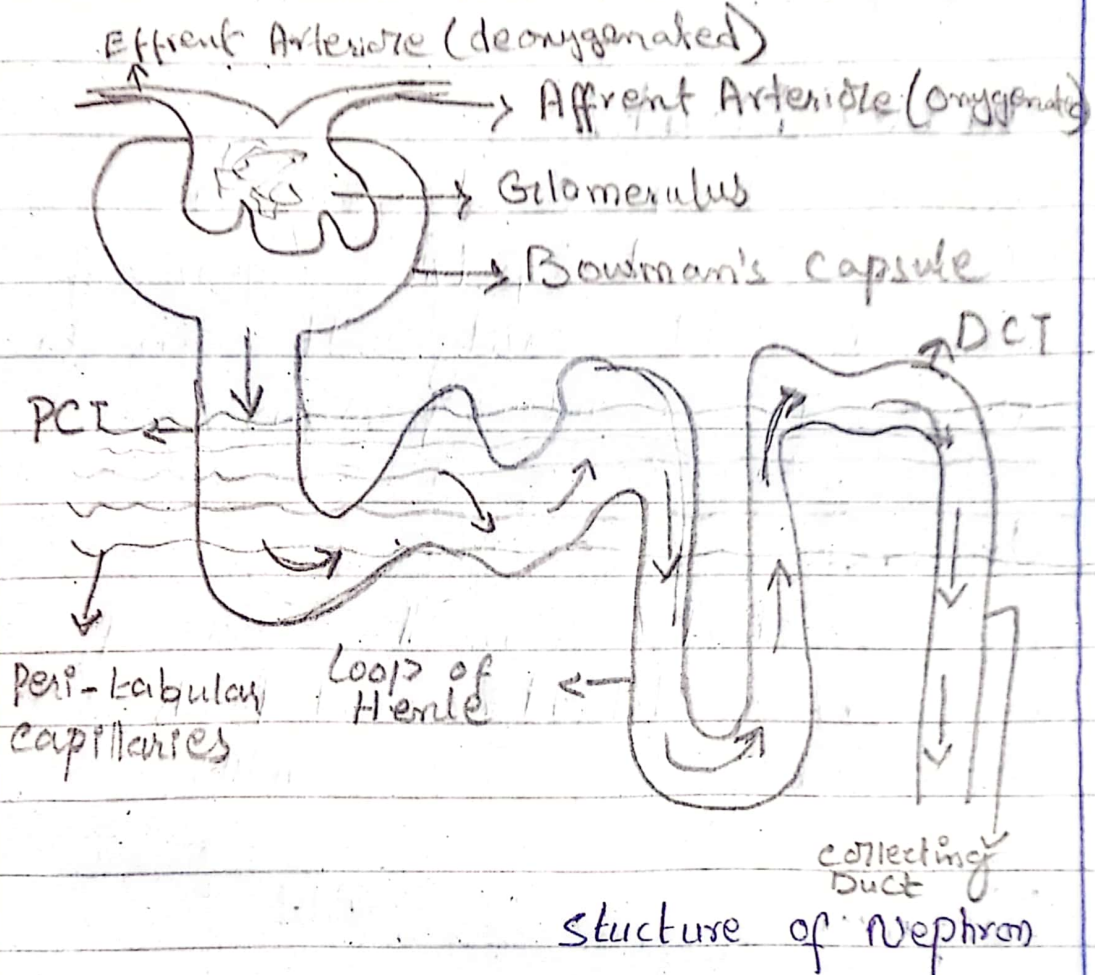 Effrent Arteriore (deoxygenated)
Affrent Arteriole (oxygenated)
Glomerulus
Bowman's capsule
DCT
PCT
Peri-tabular
capillaries
Loop of
Henle
collecting
Duct
Stucture of Nephron